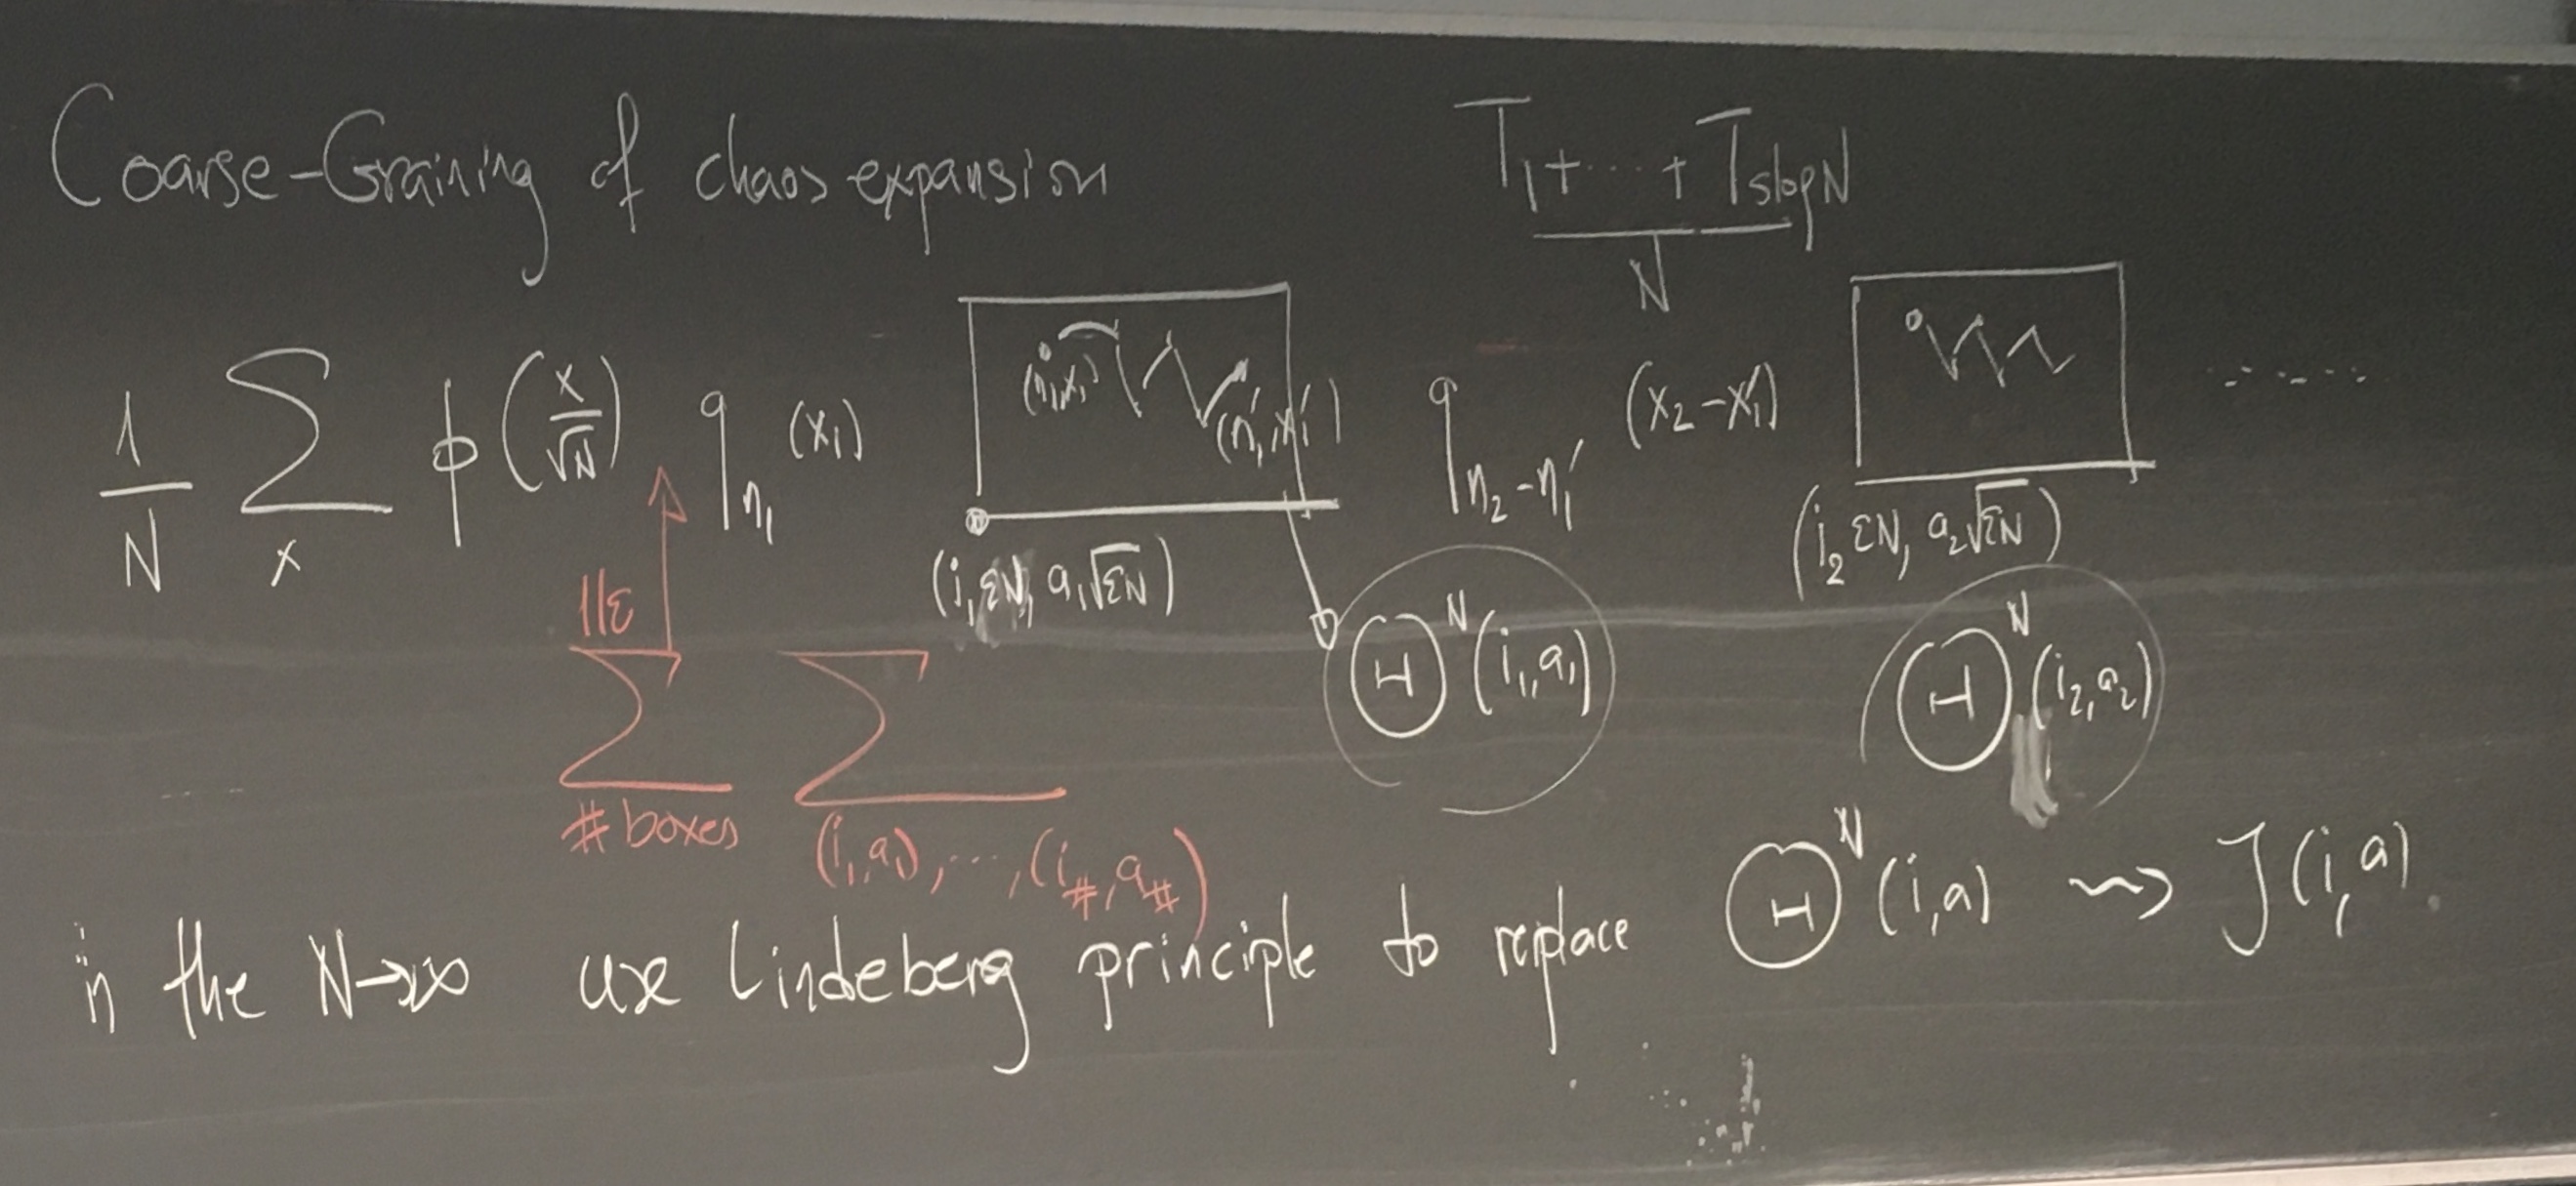 Coarse-Graining of chaos expansion
T₁+⋯+T_{slogN} / N
1/N Σ_x ϕ(x/√N) q_{n₁}(x₁) (n₁,x₁) (n₁′,x₁′) q_{n₂-n₁′}(x₂-x₁′) ......
(i₁εN, a₁√εN) (i₂εN, a₂√εN)
1/ε
Σ Σ Θ^N(i₁,a₁) Θ^N(i₂,a₂)
# boxes (i₁,a₁),⋯,(i_#,a_#)
in the N→∞ use Lindeberg principle to replace Θ^N(i,a) ⇝ J(i,a).